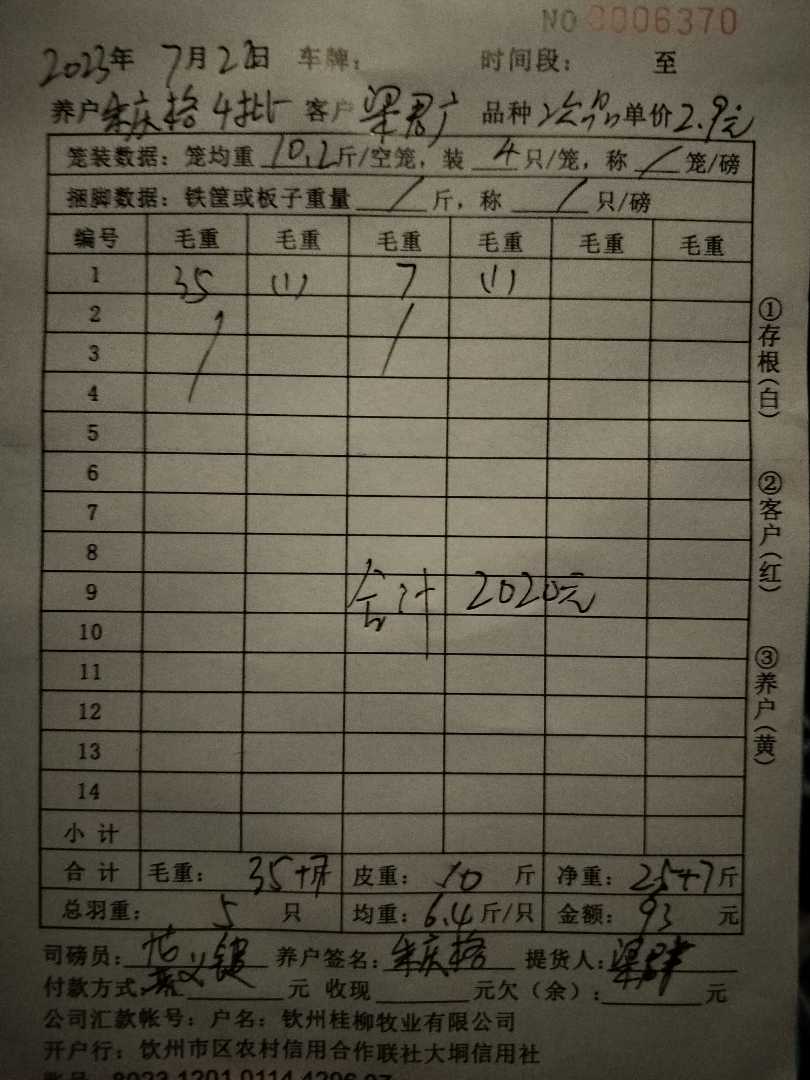 NO 0006370
2023年 7月22日 车牌： 时间段： 至
养户 朱庆格4批 客户 梁君广 品种 次品 单价 2.9元
笼装数据：笼均重 10.2 斤/空笼，装 4 只/笼，称 / 笼/磅
捆脚数据：铁筐或板子重量 / 斤，称 / 只/磅
编号 毛重 毛重 毛重 毛重 毛重 毛重
1 35 (1) 7 (1)
2
3
4
5
6
7
8
9 合计 2020元
10
11
12
13
14
小计
合计 毛重： 35+7斤 皮重： 10 斤 净重： 25+7斤
总羽重： 5 只 均重： 6.4 斤/只 金额： 93 元
司磅员： 养户签名： 朱庆格 提货人：
付款方式：汇 元 收现 元欠（余）： 元
公司汇款帐号：户名：钦州桂柳牧业有限公司
开户行：钦州市区农村信用合作联社大垌信用社
①存根（白）
②客户（红）
③养户（黄）